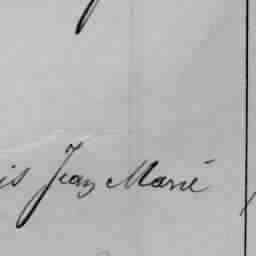 is Jean Marie